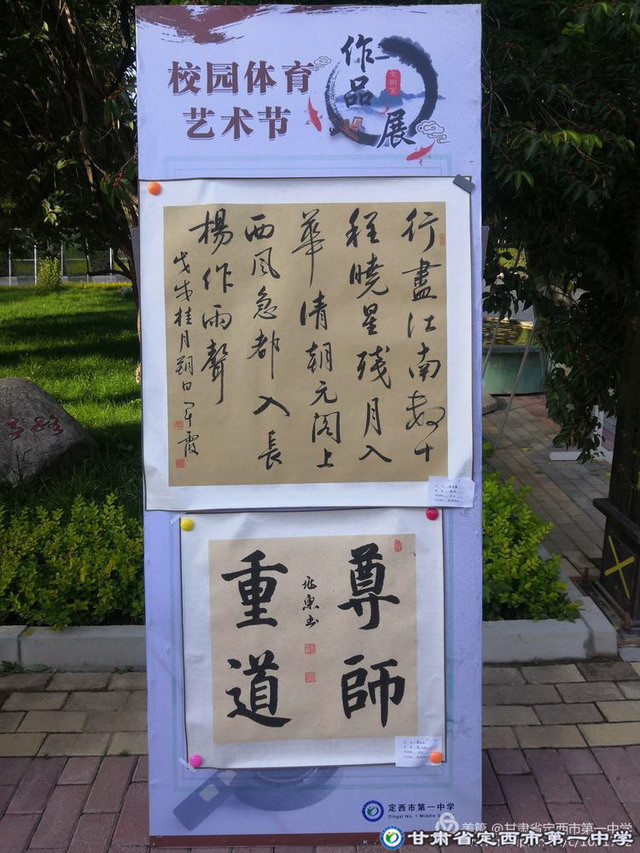 校园体育
艺术节
作品展
行盡江南數十
程曉星殘月入
華清朝元閣上
西風急都入長
楊作雨聲
戊戌桂月朔日軍霞
尊師
重道
兆東书
定西市第一中学
Dingxi No. 1 Middle S
美篇 @甘肃省定西市第一中学
甘肃省定西市第一中学